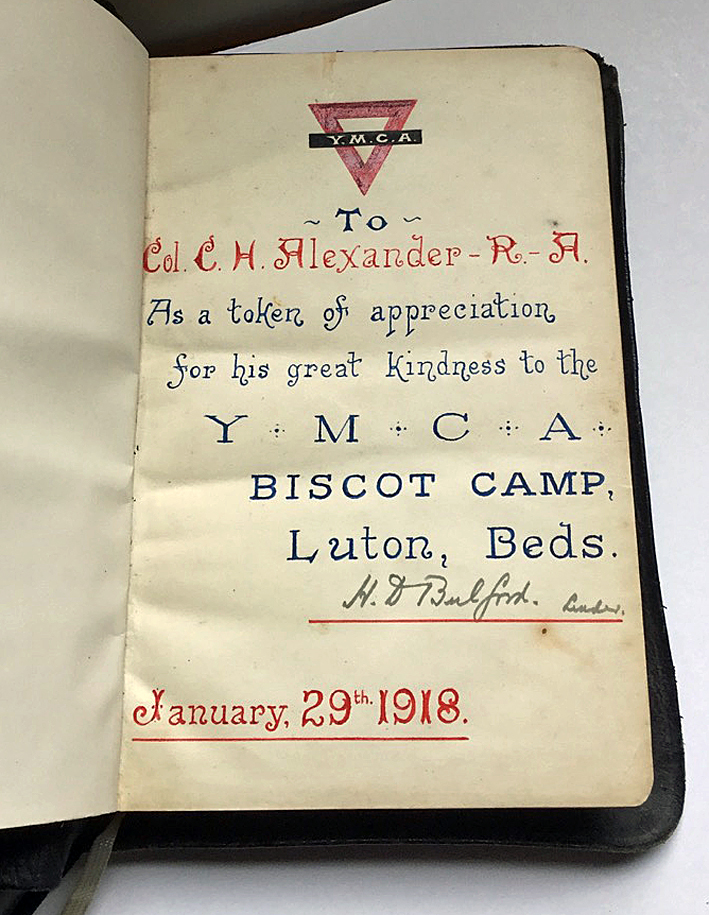 Y.M.C.A.
~ To ~
Col. C. H. Alexander - R. - A.
As a token of appreciation
for his great kindness to the
Y M C A
BISCOT CAMP,
Luton, Beds.
H. D Bulford. Leader.
January, 29th. 1918.